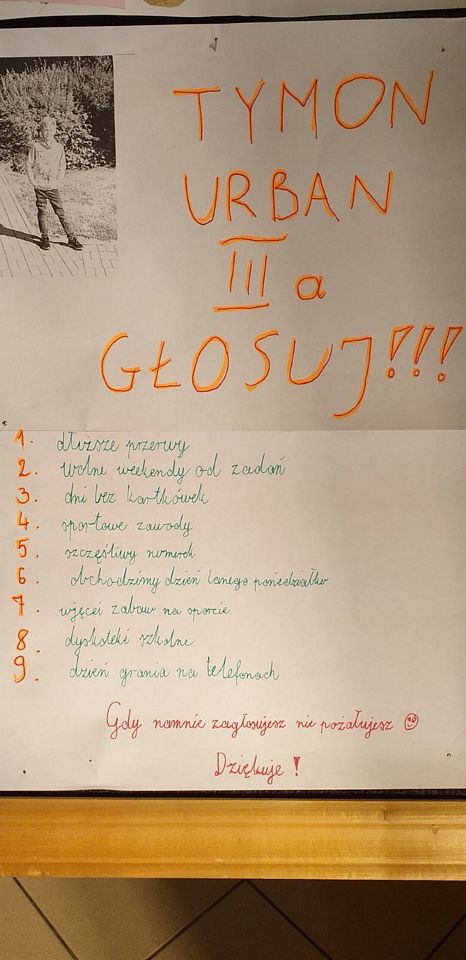 TYMON
URBAN
III a
GŁOSUJ!!!
1. dłuższe przerwy
2. wolne weekendy od zadań
3. dni bez kartkówek
4. sportowe zawody
5. szczęśliwy numerek
6. obchodzimy dzień lanego poniedziałku
7. więcei zabaw na sporcie
8. dyskoteki szkolne
9. dzień grania na telefonach
Gdy namnie zagłosujesz nie pożałujesz ☺
Dziękuje !